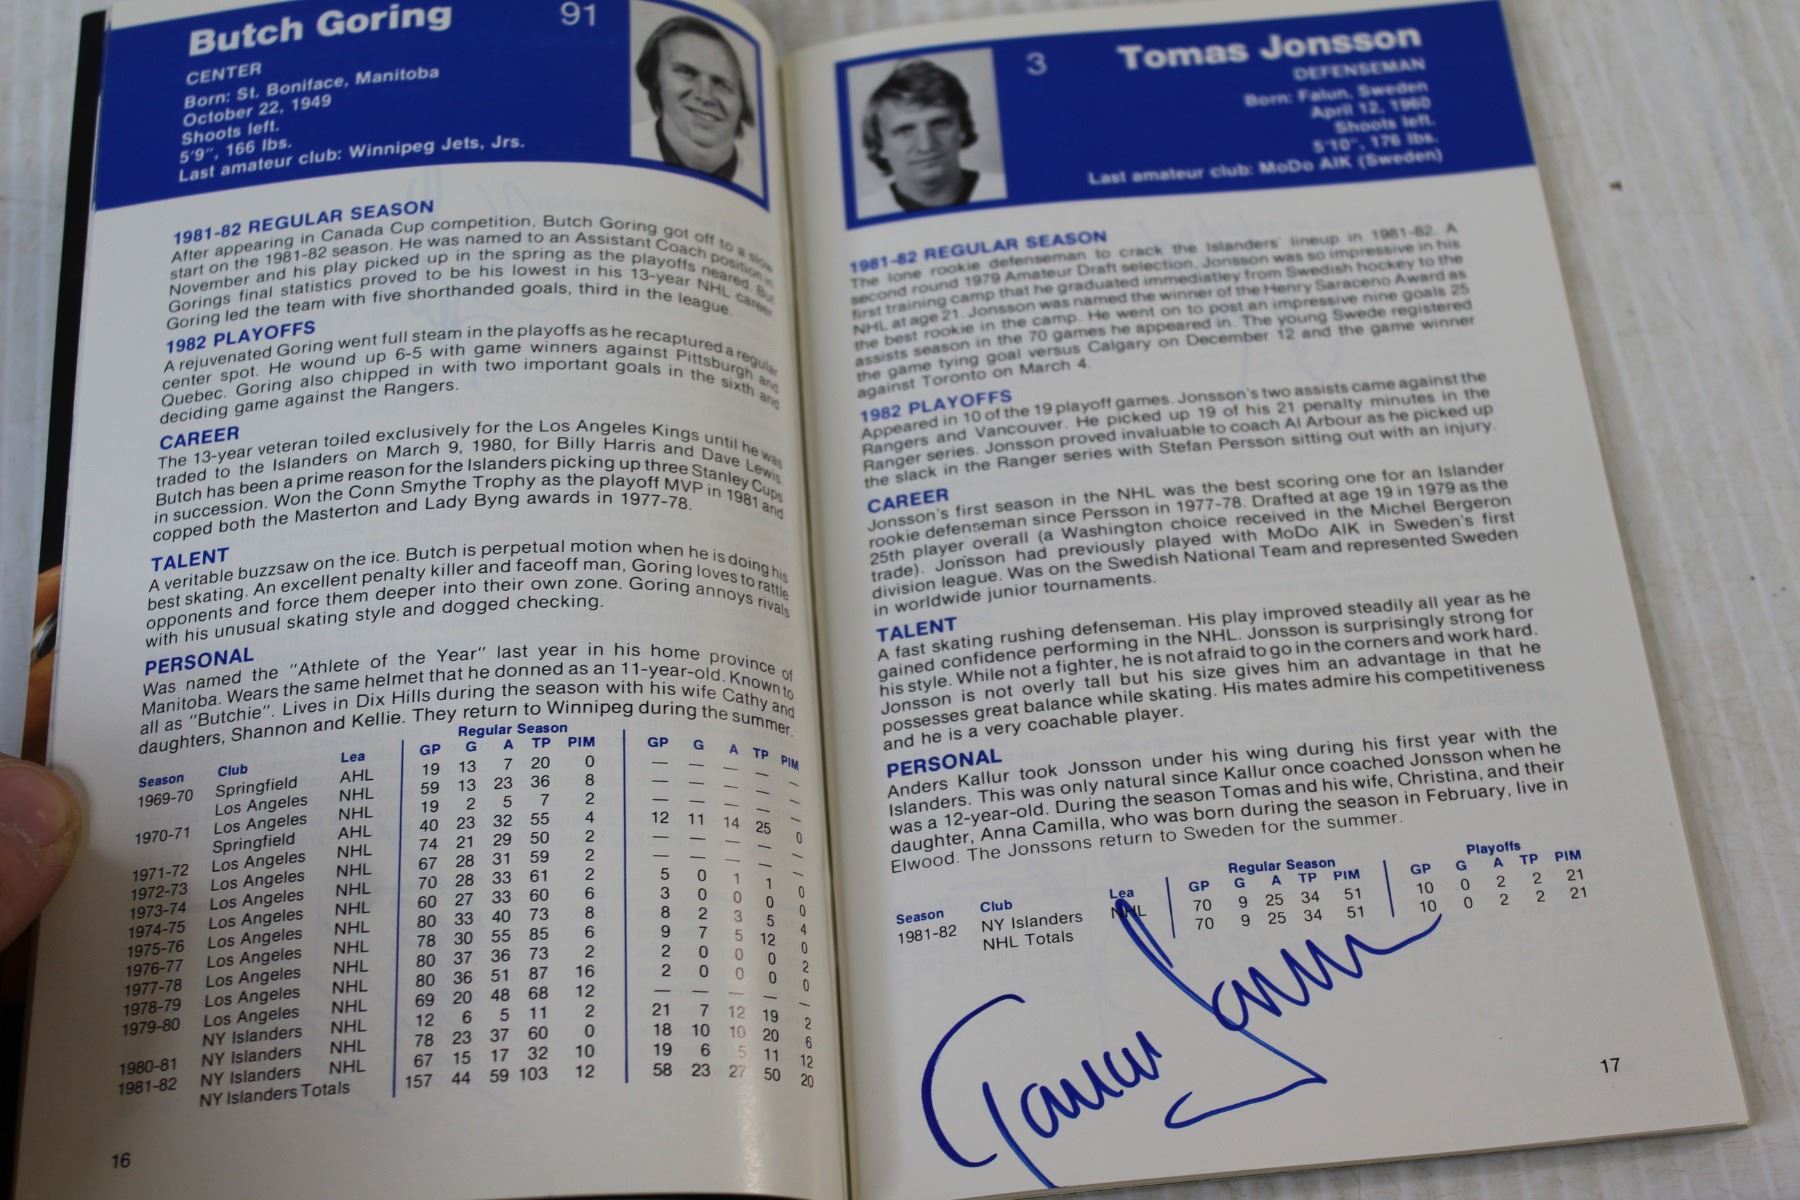 Butch Goring 91
CENTER
Born: St. Boniface, Manitoba
October 22, 1949
Shoots left.
5'9", 166 lbs.
Last amateur club: Winnipeg Jets, Jrs.
1981-82 REGULAR SEASON
After appearing in Canada Cup competition, Butch Goring got off to a slow
start on the 1981-82 season. He was named to an Assistant Coach position in
November and his play picked up in the spring as the playoffs neared. But
Gorings final statistics proved to be his lowest in his 13-year NHL career.
Goring led the team with five shorthanded goals, third in the league.
1982 PLAYOFFS
A rejuvenated Goring went full steam in the playoffs as he recaptured a regular
center spot. He wound up 6-5 with game winners against Pittsburgh and
Quebec. Goring also chipped in with two important goals in the sixth and
deciding game against the Rangers.
CAREER
The 13-year veteran toiled exclusively for the Los Angeles Kings until he was
traded to the Islanders on March 9, 1980, for Billy Harris and Dave Lewis.
Butch has been a prime reason for the Islanders picking up three Stanley Cups
in succession. Won the Conn Smythe Trophy as the playoff MVP in 1981 and
copped both the Masterton and Lady Byng awards in 1977-78.
TALENT
A veritable buzzsaw on the ice. Butch is perpetual motion when he is doing his
best skating. An excellent penalty killer and faceoff man, Goring loves to rattle
opponents and force them deeper into their own zone. Goring annoys rivals
with his unusual skating style and dogged checking.
PERSONAL
Was named the "Athlete of the Year" last year in his home province of
Manitoba. Wears the same helmet that he donned as an 11-year-old. Known to
all as "Butchie". Lives in Dix Hills during the season with his wife Cathy and
daughters, Shannon and Kellie. They return to Winnipeg during the summer.
Regular Season
Season Club Lea GP G A TP PIM GP G A TP PIM
1969-70 Springfield AHL 19 13 7 20 0 — — — — —
Los Angeles NHL 59 13 23 36 8 — — — — —
1970-71 Los Angeles NHL 19 2 5 7 2 — — — — —
Springfield AHL 40 23 32 55 4 12 11 14 25 0
1971-72 Los Angeles NHL 74 21 29 50 2 — — — — —
1972-73 Los Angeles NHL 67 28 31 59 2 — — — — —
1973-74 Los Angeles NHL 70 28 33 61 2 5 0 1 1 0
1974-75 Los Angeles NHL 60 27 33 60 6 3 0 0 0 0
1975-76 Los Angeles NHL 80 33 40 73 8 8 2 3 5 4
1976-77 Los Angeles NHL 78 30 55 85 6 9 7 5 12 0
1977-78 Los Angeles NHL 80 37 36 73 2 2 0 0 0 2
1978-79 Los Angeles NHL 80 36 51 87 16 2 0 0 0 0
1979-80 Los Angeles NHL 69 20 48 68 12 — — — — —
NY Islanders NHL 12 6 5 11 2 21 7 12 19 2
1980-81 NY Islanders NHL 78 23 37 60 0 18 10 10 20 6
1981-82 NY Islanders NHL 67 15 17 32 10 19 6 5 11 12
NY Islanders Totals 157 44 59 103 12 58 23 27 50 20
16
3 Tomas Jonsson
DEFENSEMAN
Born: Falun, Sweden
April 12, 1960
Shoots left.
5'10", 176 lbs.
Last amateur club: MoDo AIK (Sweden)
1981-82 REGULAR SEASON
The lone rookie defenseman to crack the Islanders' lineup in 1981-82. A
second round 1979 Amateur Draft selection, Jonsson was so impressive in his
first training camp that he graduated immediatley from Swedish hockey to the
NHL at age 21. Jonsson was named the winner of the Henry Saraceno Award as
the best rookie in the camp. He went on to post an impressive nine goals 25
assists season in the 70 games he appeared in. The young Swede registered
the game tying goal versus Calgary on December 12 and the game winner
against Toronto on March 4.
1982 PLAYOFFS
Appeared in 10 of the 19 playoff games. Jonsson's two assists came against the
Rangers and Vancouver. He picked up 19 of his 21 penalty minutes in the
Ranger series. Jonsson proved invaluable to coach Al Arbour as he picked up
the slack in the Ranger series with Stefan Persson sitting out with an injury.
CAREER
Jonsson's first season in the NHL was the best scoring one for an Islander
rookie defenseman since Persson in 1977-78. Drafted at age 19 in 1979 as the
25th player overall (a Washington choice received in the Michel Bergeron
trade). Jonsson had previously played with MoDo AIK in Sweden's first
division league. Was on the Swedish National Team and represented Sweden
in worldwide junior tournaments.
TALENT
A fast skating rushing defenseman. His play improved steadily all year as he
gained confidence performing in the NHL. Jonsson is surprisingly strong for
his style. While not a fighter, he is not afraid to go in the corners and work hard.
Jonsson is not overly tall but his size gives him an advantage in that he
possesses great balance while skating. His mates admire his competitiveness
and he is a very coachable player.
PERSONAL
Anders Kallur took Jonsson under his wing during his first year with the
Islanders. This was only natural since Kallur once coached Jonsson when he
was a 12-year-old. During the season Tomas and his wife, Christina, and their
daughter, Anna Camilla, who was born during the season in February, live in
Elwood. The Jonssons return to Sweden for the summer.
Regular Season Playoffs
Season Club Lea GP G A TP PIM GP G A TP PIM
1981-82 NY Islanders NHL 70 9 25 34 51 10 0 2 2 21
NHL Totals 70 9 25 34 51 10 0 2 2 21
Tomas Jonsson
17